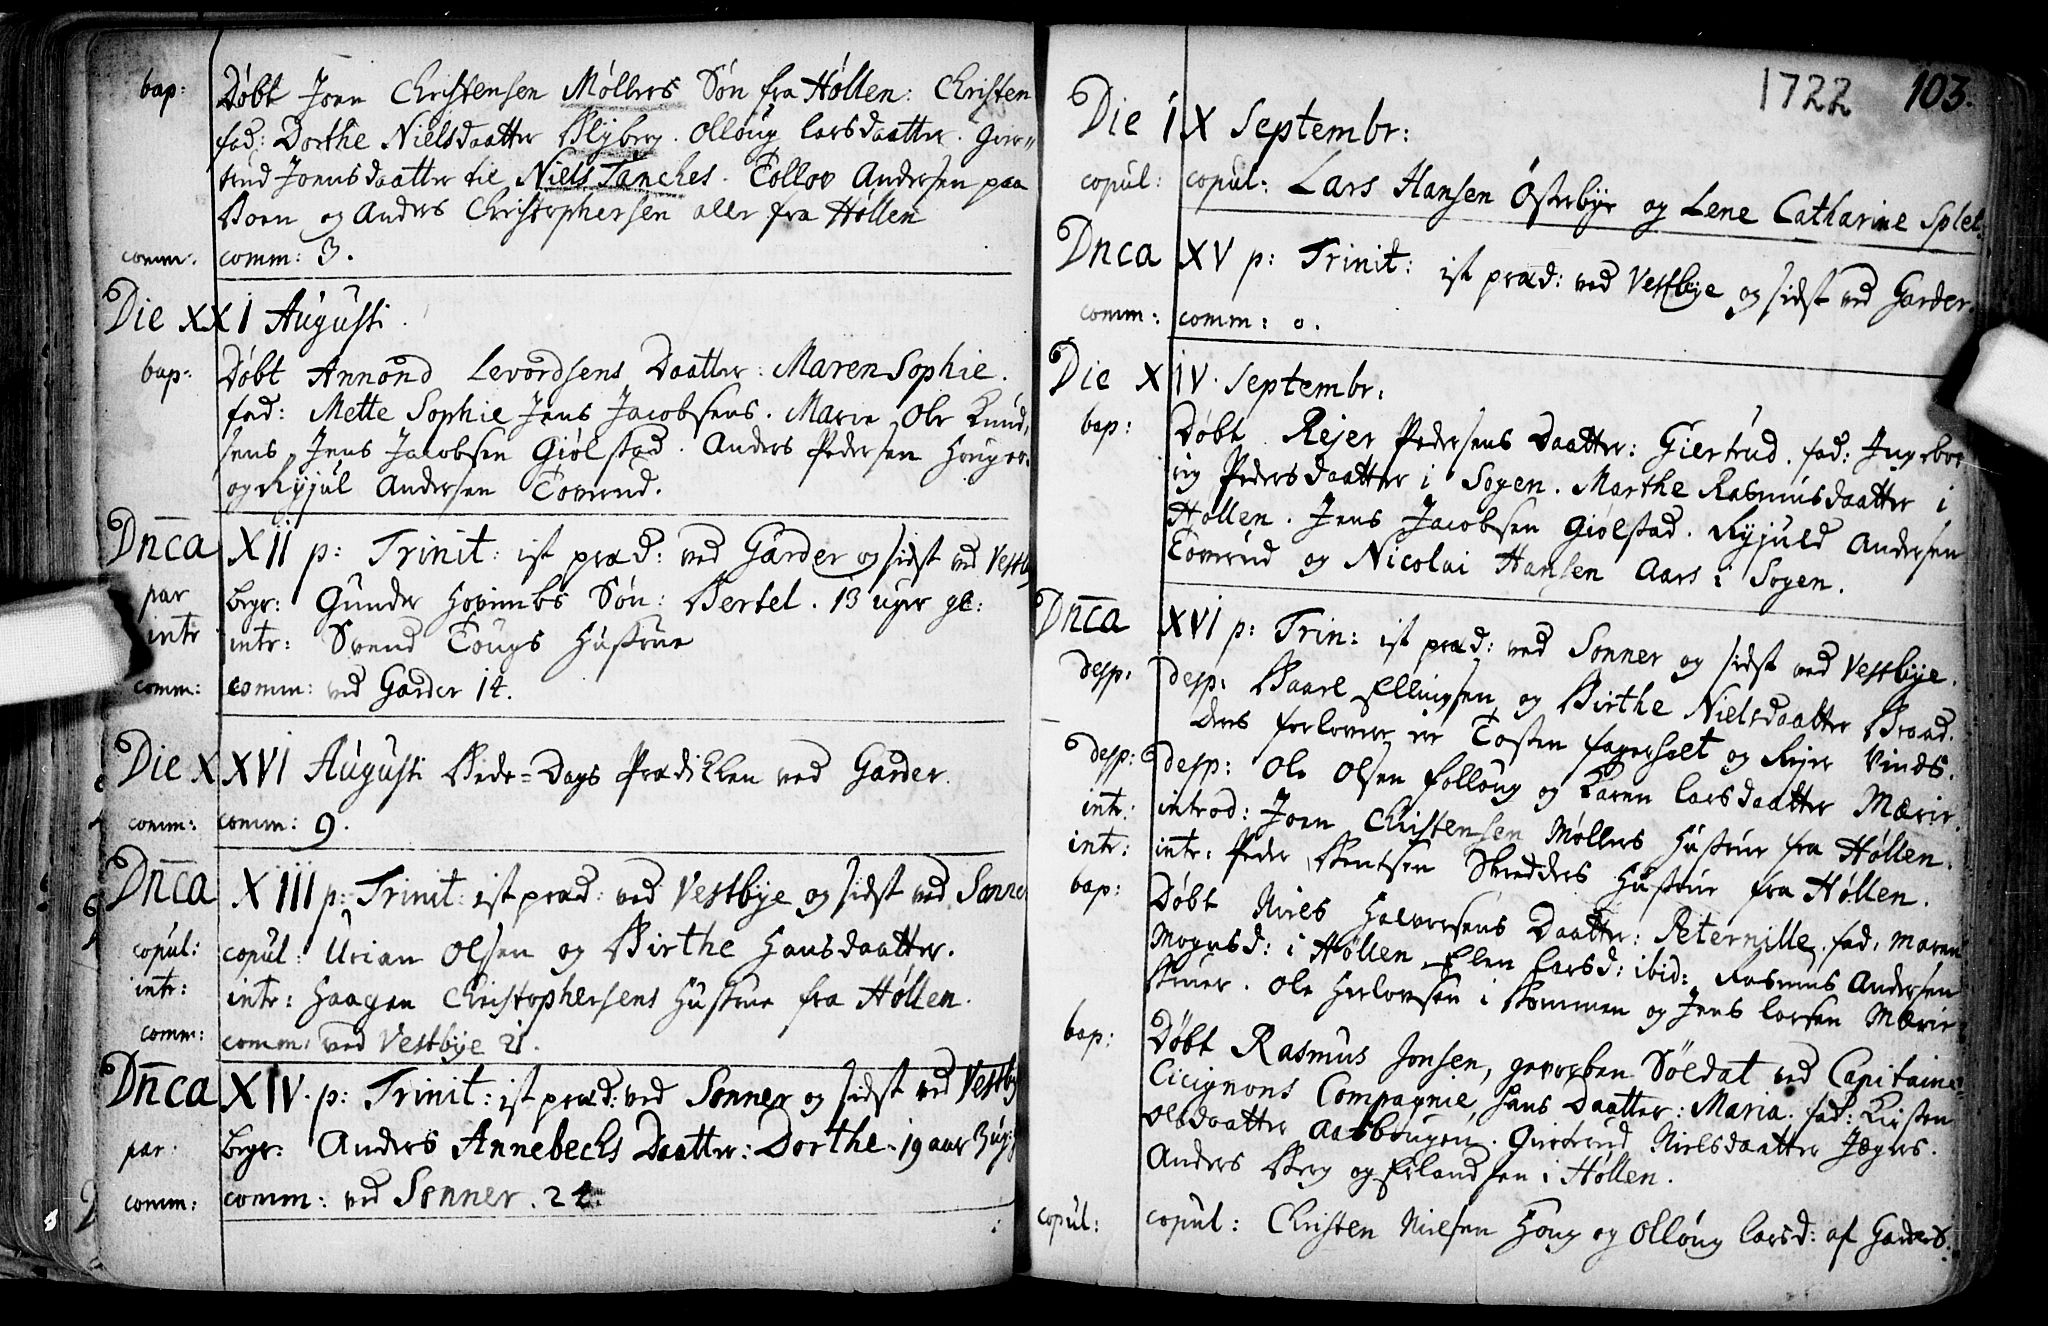 bap: Døbt Joen Christensen Møllers Søn fra Hòllen: Christen
fad: Dorthe Nielsdaatter Blyberg. Olloug Larsdaatter. Gier=
trud Joensdaatter til Niels Tanches. Tollov Andersen paa
Boen og Anders Christophersen aller fra Hòllen
comm: comm: 3.
Die XXI Augusti.
bap: Døbt Annond Levordsens Daatter: Maren Sophie.
fad: Mette Sophie Jens Jacobsens. Marie Ole Knud,
sens, Jens Jacobsen Giølstad. Anders Pedersen
og Ryjul Andersen Toverud.
Dn̄ca XII p: Trinit: ist præd: ved Garder og sidst ved Vestb
par begr: Gunder Søn: Bertel. 13 uger gl:
intr intr: Svend Tougs Hustrue
comm: comm: ved Garder 14.
Die XXVI Augusti Bede=Dags Prædicken ved Garder.
comm: comm: 9.
Dn̄ca XIII p: Trinit: ist præd: ved Vestbye og sidst ved Sonne
copul: copul: Urian Olsen og Birthe Hansdaatter.
intr: intr: Haagen Christophersens Hustrue fra Hòllen.
comm: comm: ved Vestbye 21.
Dn̄ca XIV. p: Trinit: ist præd: ved Sonner og sidst ved Vestby
par: begr: Anders Annebechs Daatter: Dorthe. 19 aar 3 ug:
comm: comm: ved Sonner. 24.
1722 103.
Die IX Septembr:
copul: copul: Lars Hansen Østerbye og Lene Catharine Splet.
Dnca XV p: Trinit: ist præd: ved Vestbye og sidst ved Garder.
comm: comm: 0.
Die XIV. Septembr:
bap: Døbt Rejer Pedersens Daatter: Giertrud. fad: Ingebor
rig Pedersdaatter i Sogen. Marthe Rasmusdaatter i
Hollen. Jens Jacobsen Giølstad. Ryjuld Andersen
Toverud og Nicolai Hansen Aars i Sogen.
Dn̄ca XVI p: Trin: ist præd: ved Sonner og sidst ved Vestbye.
desp: desp: Baarl Ellingsen og Birthe Nielsdaatter Braad.
Dens forlover er Tosten fagerholt og Rejer Vinds.
desp: desp: Ole Olsen Folloug og Karen Larsdaatter Mærir.
intr: introd: Joen Christensen Møllers Hustrue fra Hòllen.
intr: intr: Peder Bentsen Skredders Hustrue fra Hòllen.
bap: Døbt Niels Halvorsens Daatter: Peternille. fad: Maren
Mogensd: i Hòllen Elen Larsd: ibid: Rasmus Andersen
Kruer. Ole Herlovsen i Kommen og Jens Larsen Mærir
bap: Døbt Rasmus Jonsen, gevorben Søldat ved Capitaine
Cicignons Compagnie, hans Daatter: Maria. fad: Kirsten
Olsdaatter Aasbougen. Giertrud Nielsdaatter Jægers.
Anders Berg og Erlandsen i Hòllen.
copul: copul: Christen Nielsen Houg og Olloug Larsd: af Garders.